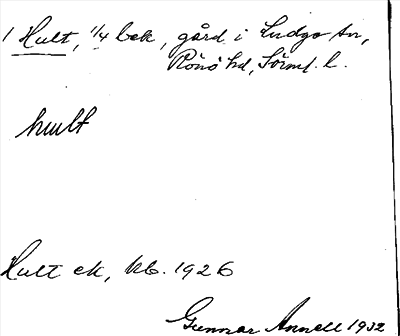 1 Hult, 1/4 bek, gård i Ludgo sn,
Rönö hd, Sörml. l.
hult
Hult ek, kb. 1926
Gunnar Annell 1932